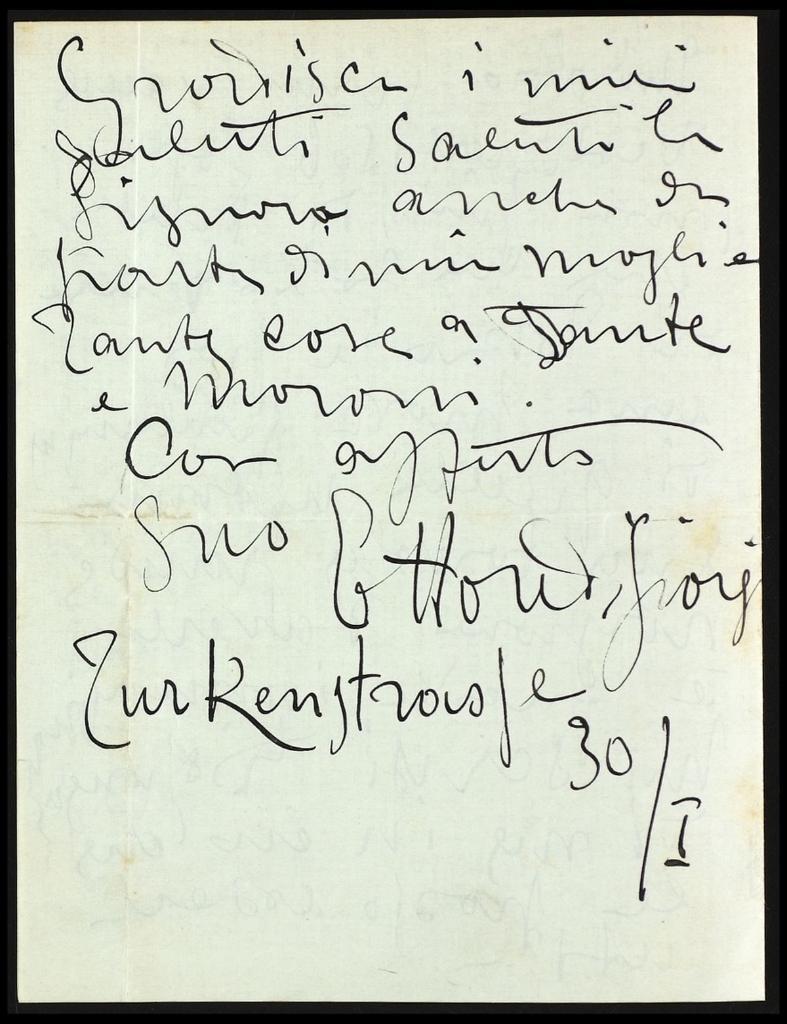 Gradisca i miei
saluti Saluti la
Signora anche da
parte di mia moglie
Tante cose a Dante
e Moroni.
Con affetto
Suo Ettore di Giorgi
Turkenstrasse
30/I